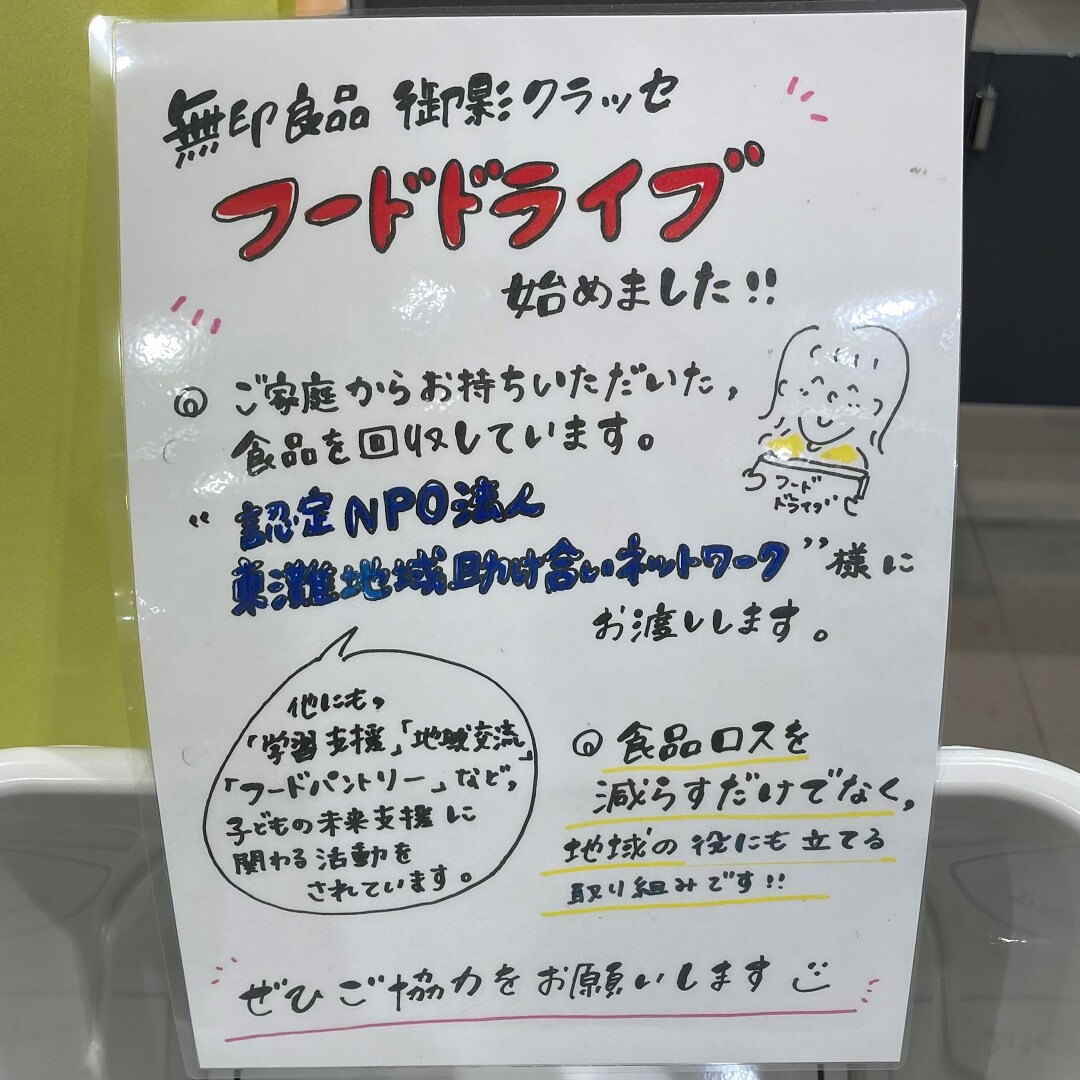 無印良品 御影クラッセ
フードドライブ
始めました!!
◎ ご家庭からお持ちいただいた,
食品を回収しています。
フード
ドライブ
“認定NPO法人
東灘地域助け合いネットワーク”様に
お渡しします。
他にも,
「学習支援」「地域交流」
「フードパントリー」など,
子どもの未来支援に
関わる活動を
されています。
◎ 食品ロスを
減らすだけでなく,
地域の役にも立てる
取り組みです!!
ぜひご協力をお願いします